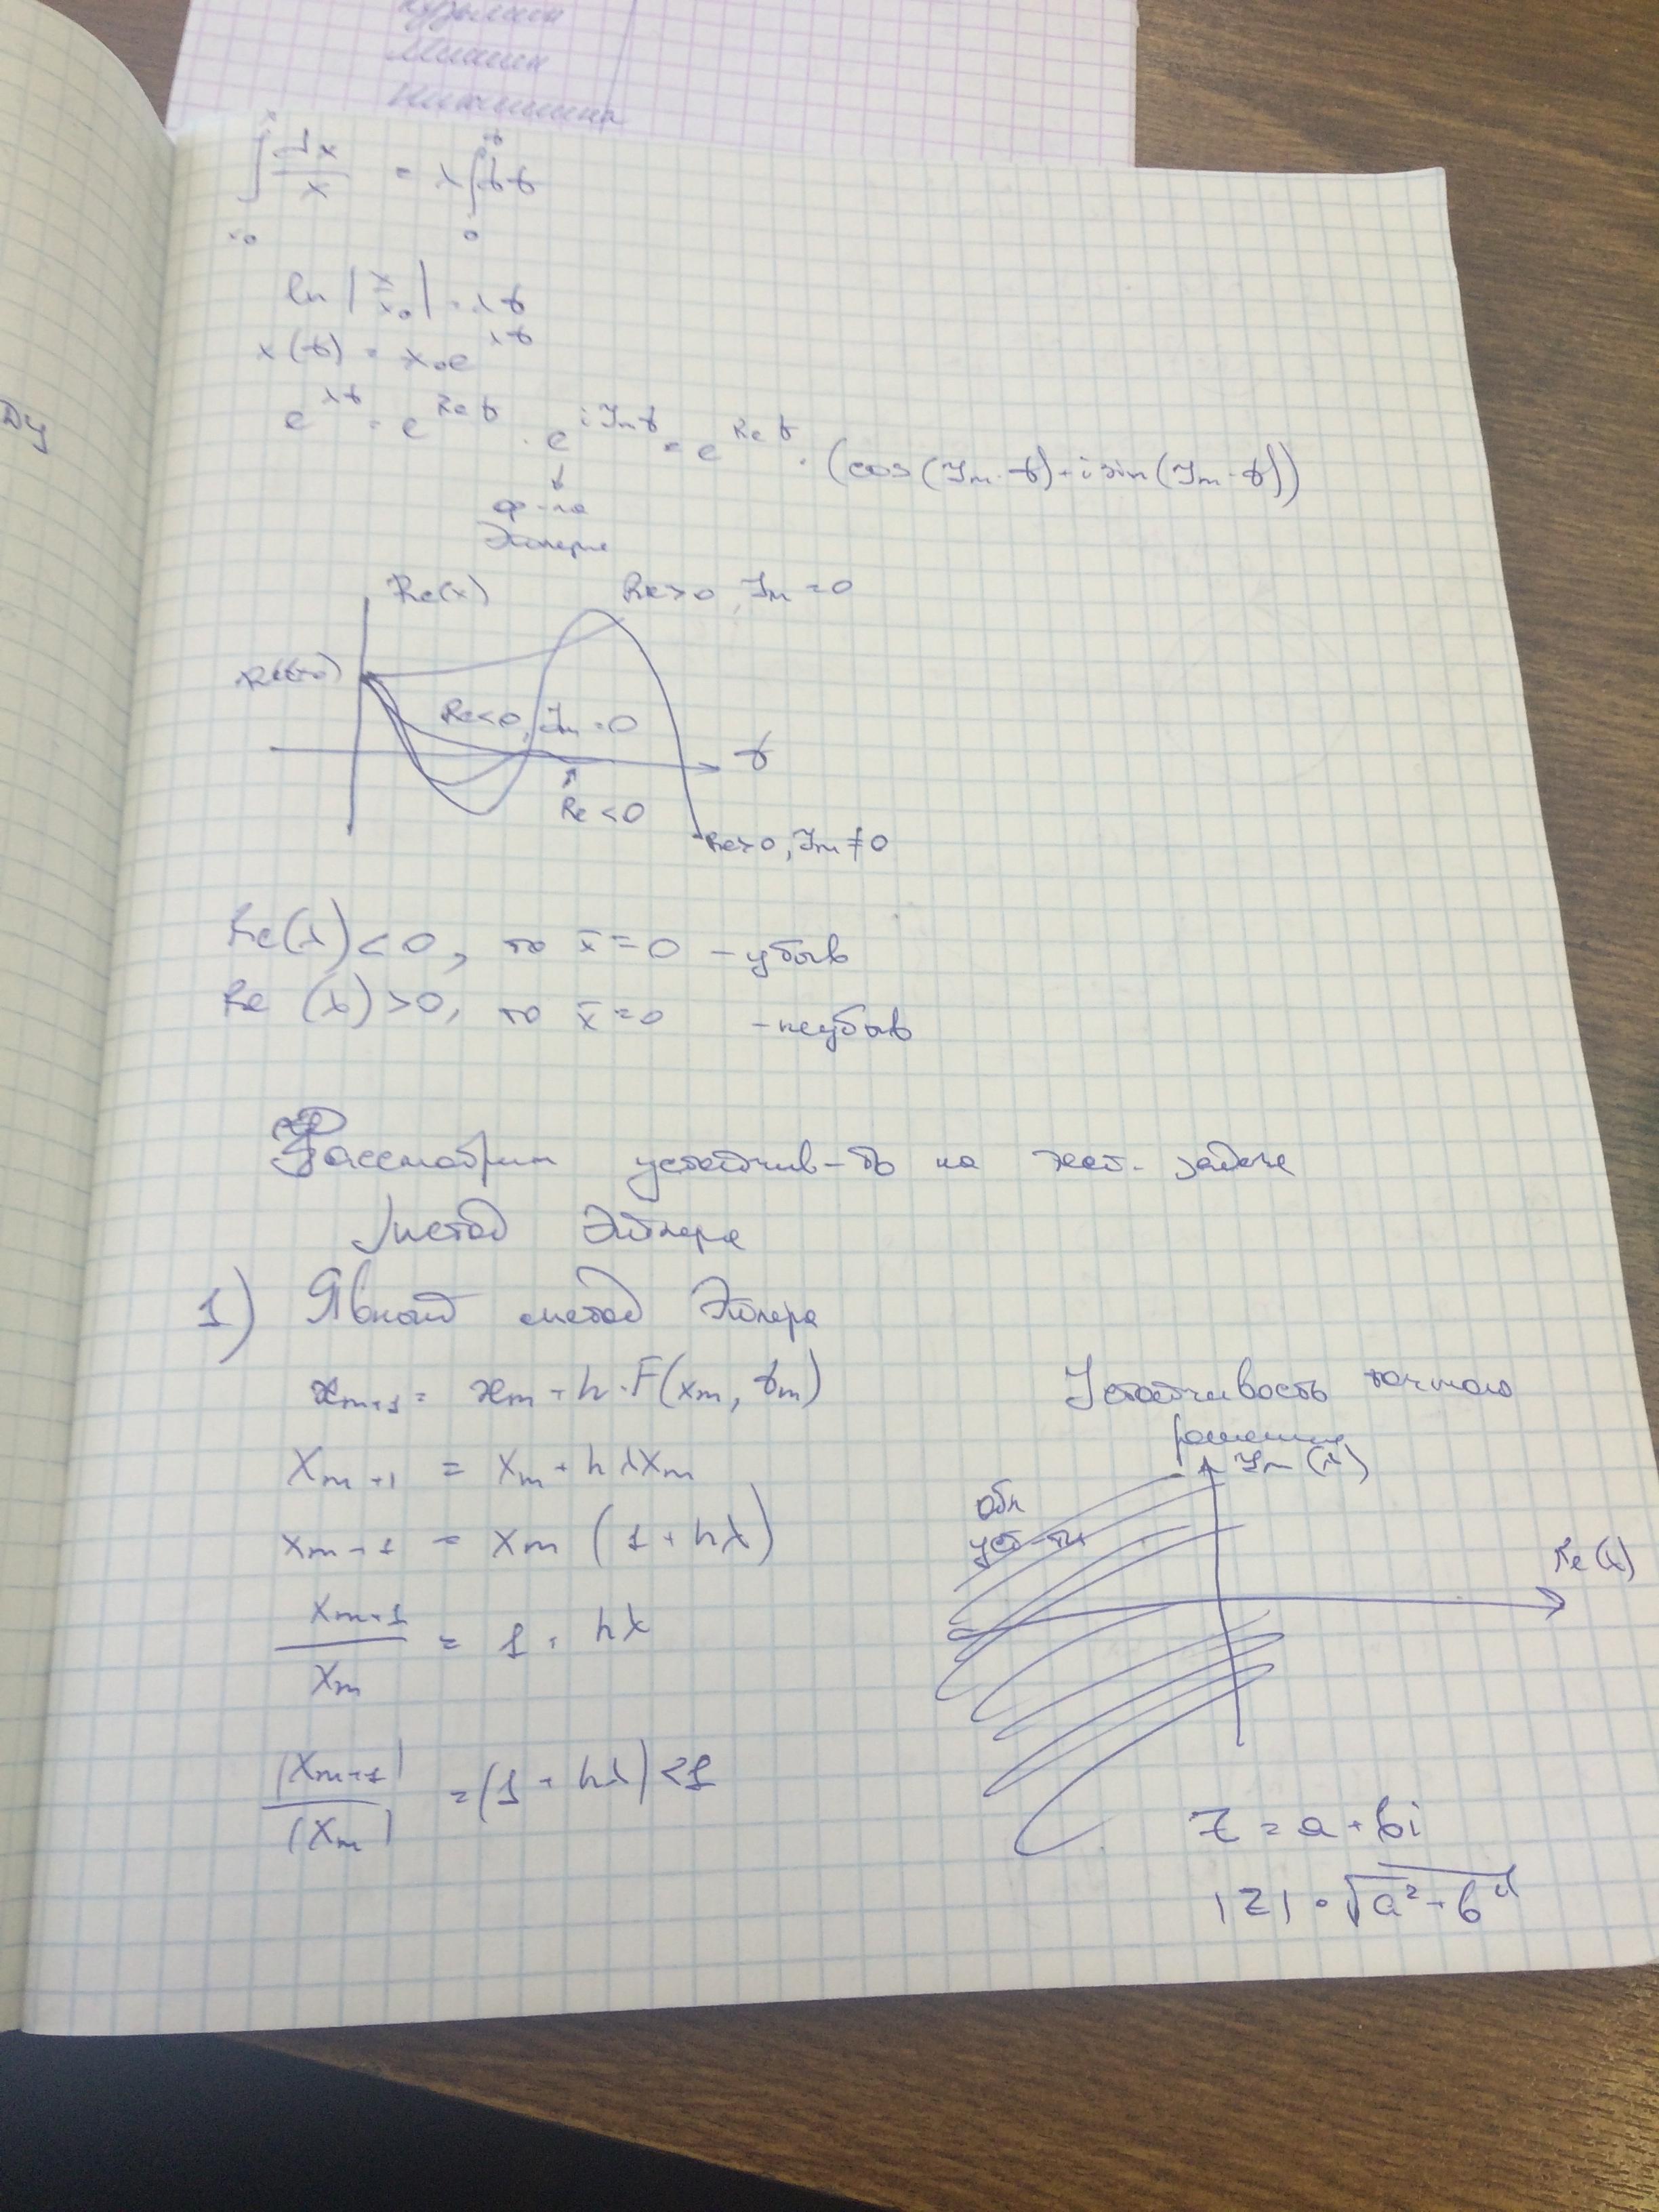 Мишин
Никишина
∫ dx/x = λ∫dt
x₀ 0
ln |x/x₀| = λt
x(t) = x₀e^λt
e^λt = e^Re t · e^i Im t = e^Re t · (cos(Im·t)+i sin(Im·t))
ф-ла
Эйлера
ДУ
Re(x)
Re>0, Im=0
Re<0, Im=0
t
Re<0
Re>0, Im≠0
Re(λ)<0, то x̄=0 – убыв
Re(λ)>0, то x̄=0 – неубыв
Рассмотрим устойчив-ть на тест. задаче
Метод Эйлера
1) Явный метод Эйлера
xₘ₊₁ = xₘ + h·F(xₘ, tₘ)
xₘ₊₁ = xₘ + hλxₘ
xₘ₊₁ = xₘ (1 + hλ)
xₘ₊₁/xₘ = 1 + hλ
|xₘ₊₁|/|xₘ| = |1 + hλ| < 1
Устойчивость точного
решения
Im(λ)
обл
уст-ти
Re(λ)
z = a + bi
|z| = √a² + b²